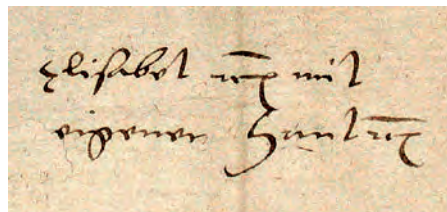 Elisabet mit
eigener Hant